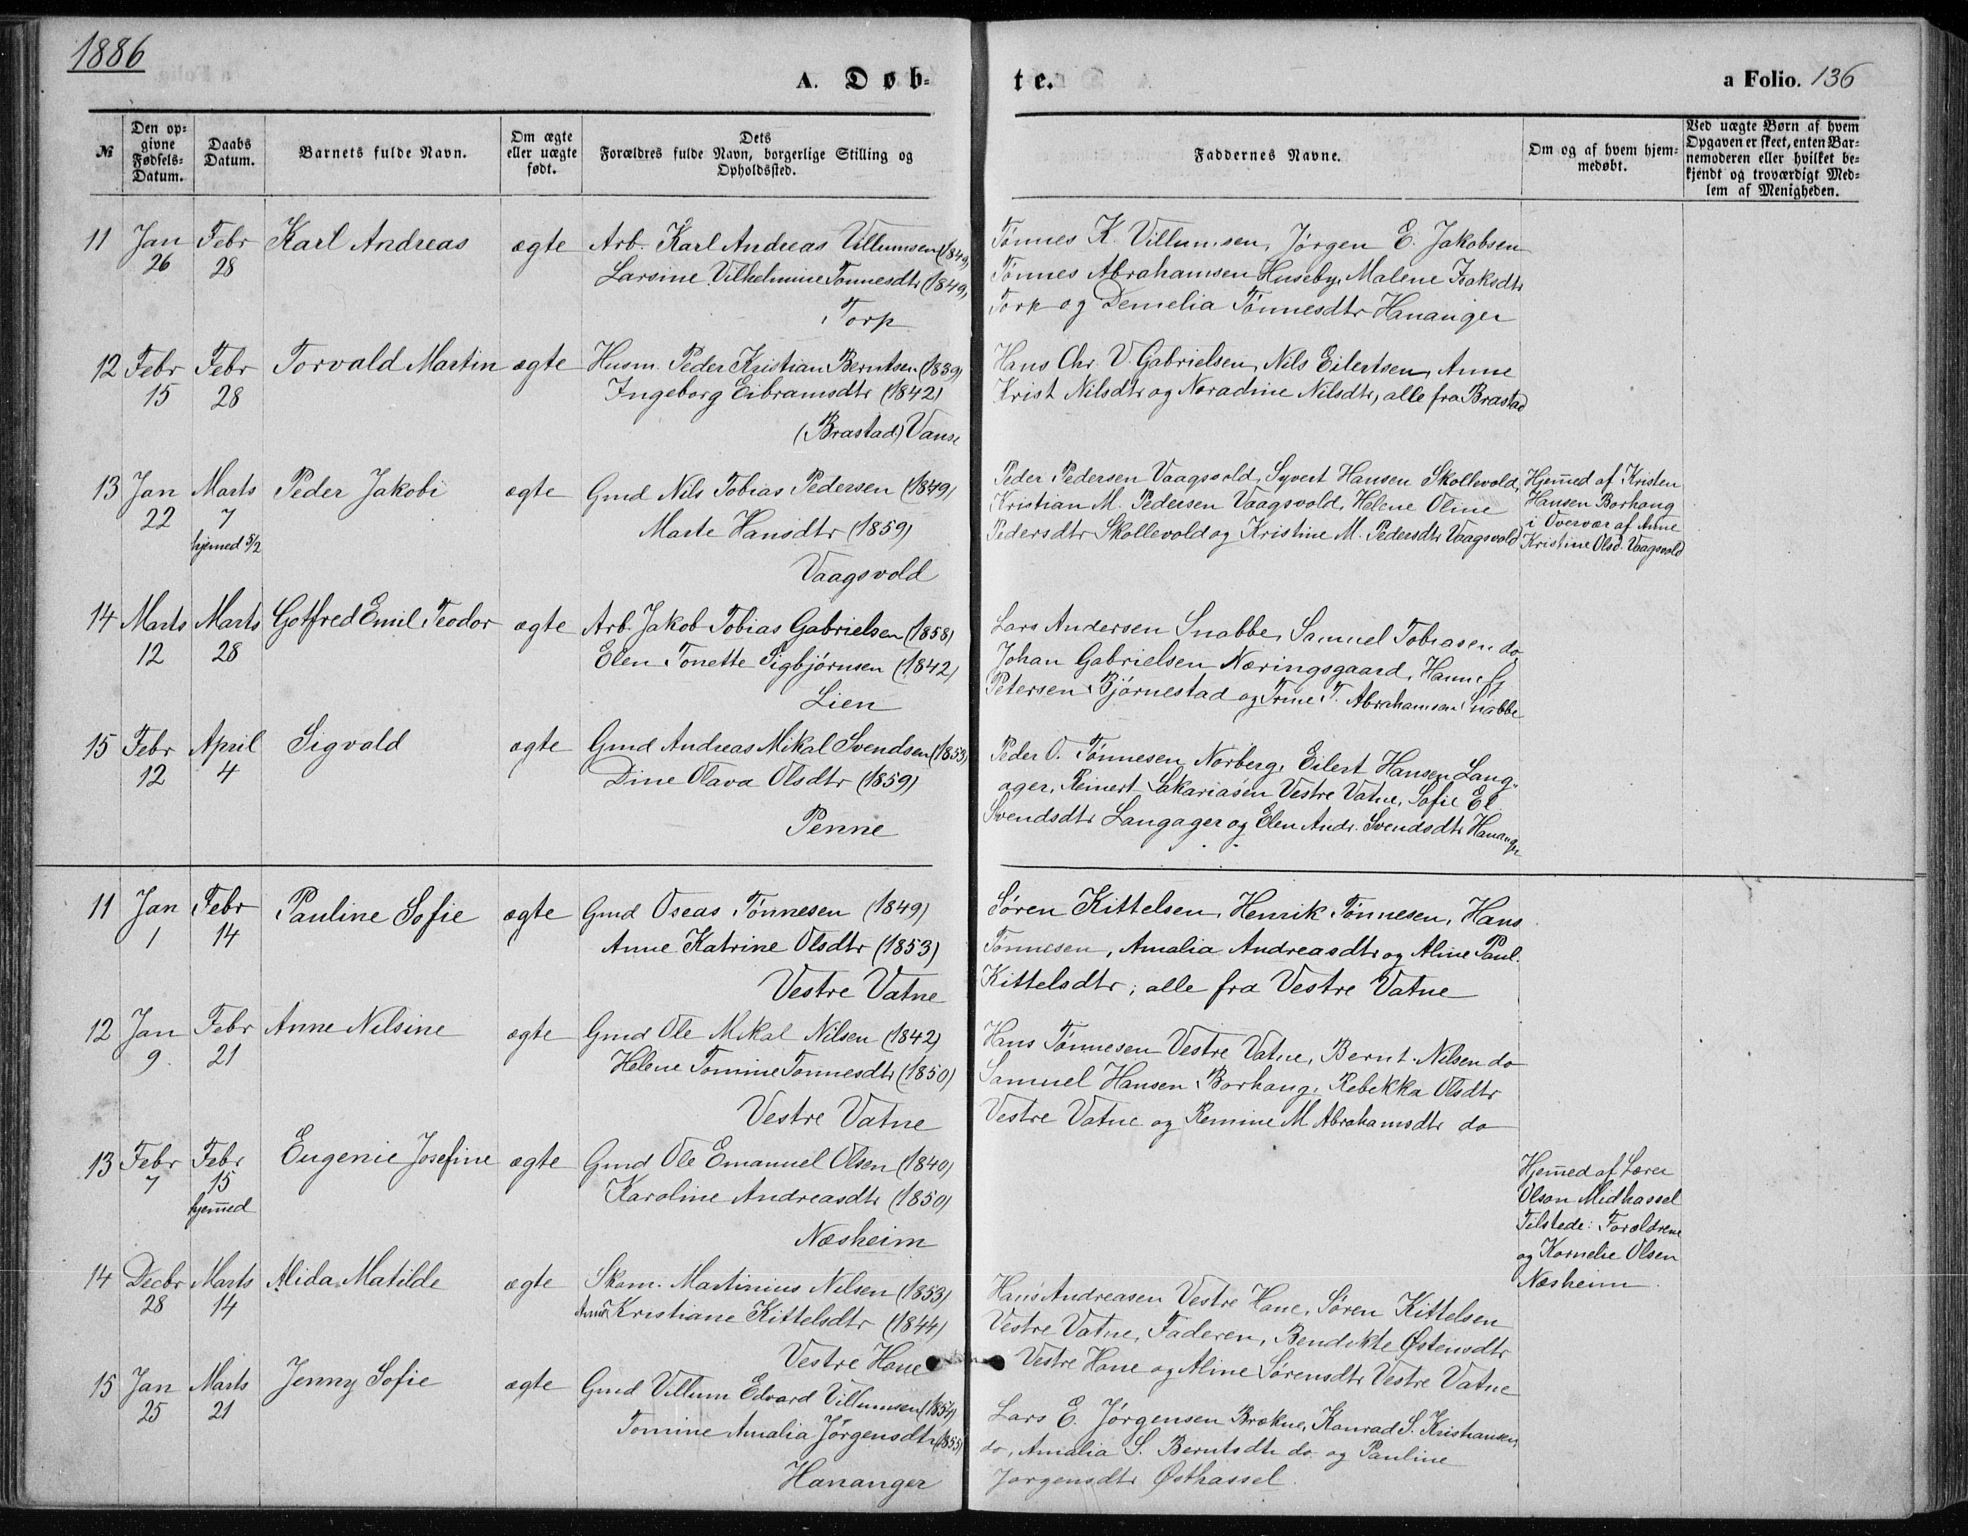 1886
A. Døb-
te.
a Folio. 136
№
Den opgivne Fødsels-Datum.
Daabs Datum.
Barnets fulde Navn.
Om ægte eller uægte født.
Dets Forældres fulde Navn, borgerlige Stilling og Opholdssted.
Faddernes Navne.
Om og af hvem hjemmedøbt.
Ved uægte Børn af hvem Opgaven er skeet, enten Barnemoderen eller hvilket bekjendt og troværdigt Medlem af Menigheden.
11 Jan Febr Karl Andreas ægte Arb. Karl Andreas Villumsen (1849) Tønnes K. Villumsen, Jørgen E. Jakobsen
26 28 Larsine Vilhelmine Tønnesdtr (1849) Tønnes Abrahamsen Huseby, Malene Isaksdtr
Torp Torp og Demelia Tønnesdtr Hananger
12 Febr Febr Torvald Martin ægte Husm. Peder Kristian Berntsen (1839) Hans Chr. V. Gabrielsen, Nils Eilertsen, Anne
15 28 Ingeborg Eibramsdtr (1842) Krist Nilsdtr og Noradine Nilsdtr, alle fra Brastad
(Brastad) Vanse
13 Jan Marts Peder Jakobi ægte Gmd Nils Tobias Pedersen (1849) Peder Pedersen Vaagsvold, Syvert Hansen Skollevold, Hjemmed af Kristen
22 7 Marte Hansdtr (1859) Kristian M. Pedersen Vaagsvold, Helene Oline Hansen Borhaug
hjemmed 5/2 Vaagsvold Pedersdtr Skollevold og Kristine M. Pedersdtr Vaagsvold i Overvær af Anne
Kristine Olsd. Vaagsvold
14 Marts Marts Gotfred Emil Teodor ægte Arb. Jakob Tobias Gabrielsen (1858) Lars Andersen Snabbe, Samuel Tobiasen do,
12 28 Elen Tonette Sigbjørnsen (1842) Johan Gabrielsen Næringsgaard, Hanne
Lien Petersen Bjørnestad og Trine T. Abrahamsen Snabbe
15 Febr April Sigvald ægte Gmd Andreas Mikal Svendsen (1853) Peder O. Tønnesen Norberg, Eilert Hansen Lang-
12 4 Dine Olava Olsdtr (1859) ager, Reinert Sakariasen Vestre Vatne, Sofie El.
Penne Svendsdtr Langager og Elen Andr. Svendsdtr Hananger
11 Jan Febr Pauline Sofie ægte Gmd Oseas Tønnesen (1849) Søren Kittelsen, Henrik Tønnesen, Hans
1 14 Anne Katrine Olsdtr (1853) Tønnesen, Amalia Andreasdtr og Aline Paul.
Vestre Vatne Kittelsdtr, alle fra Vestre Vatne
12 Jan Febr Anne Nilsine ægte Gmd Ole Mikal Nilsen (1842) Hans Tønnesen Vestre Vatne, Bernt Nilsen do
9. 21 Helene Tomine Tønnesdtr (1850) Samuel Hansen Borhaug, Rebekka Olsdtr
Vestre Vatne Vestre Vatne og Remine M Abrahamsdtr do
13 Febr Febr Eugenie Josefine ægte Gmd Ole Emanuel Olsen (1840) Hjemmed af Lærer
7 15 Karoline Andreasdtr (1850) Olson Midhassel
hjemmed Næsheim Tilstede: Forældrene
og Kornelie Olsen
Næsheim.
14 Decbr Marts Alida Matilde ægte Skom. Martinius Nilsen (1853) Hans Andreasen Vestre Hane, Søren Kittelsen
28 14 Anne Kristiane Kittelsdtr (1844) Vestre Vatne, Faderen, Bendikte Østensdtr
Vestre Hane Vestre Hane og Aline Sørensdtr Vestre Vatne
15 Jan Marts Jenny Sofie ægte Gmd Villum Edvard Villumsen (1854) Lars E. Jørgensen Brekne, Konrad S. Kristiansen
25 21 Tomine Amalia Jørgensdtr (1855) do, Amalia S. Berntsdtr do og Pauline
Hananger Jørgensdtr Østhassel.